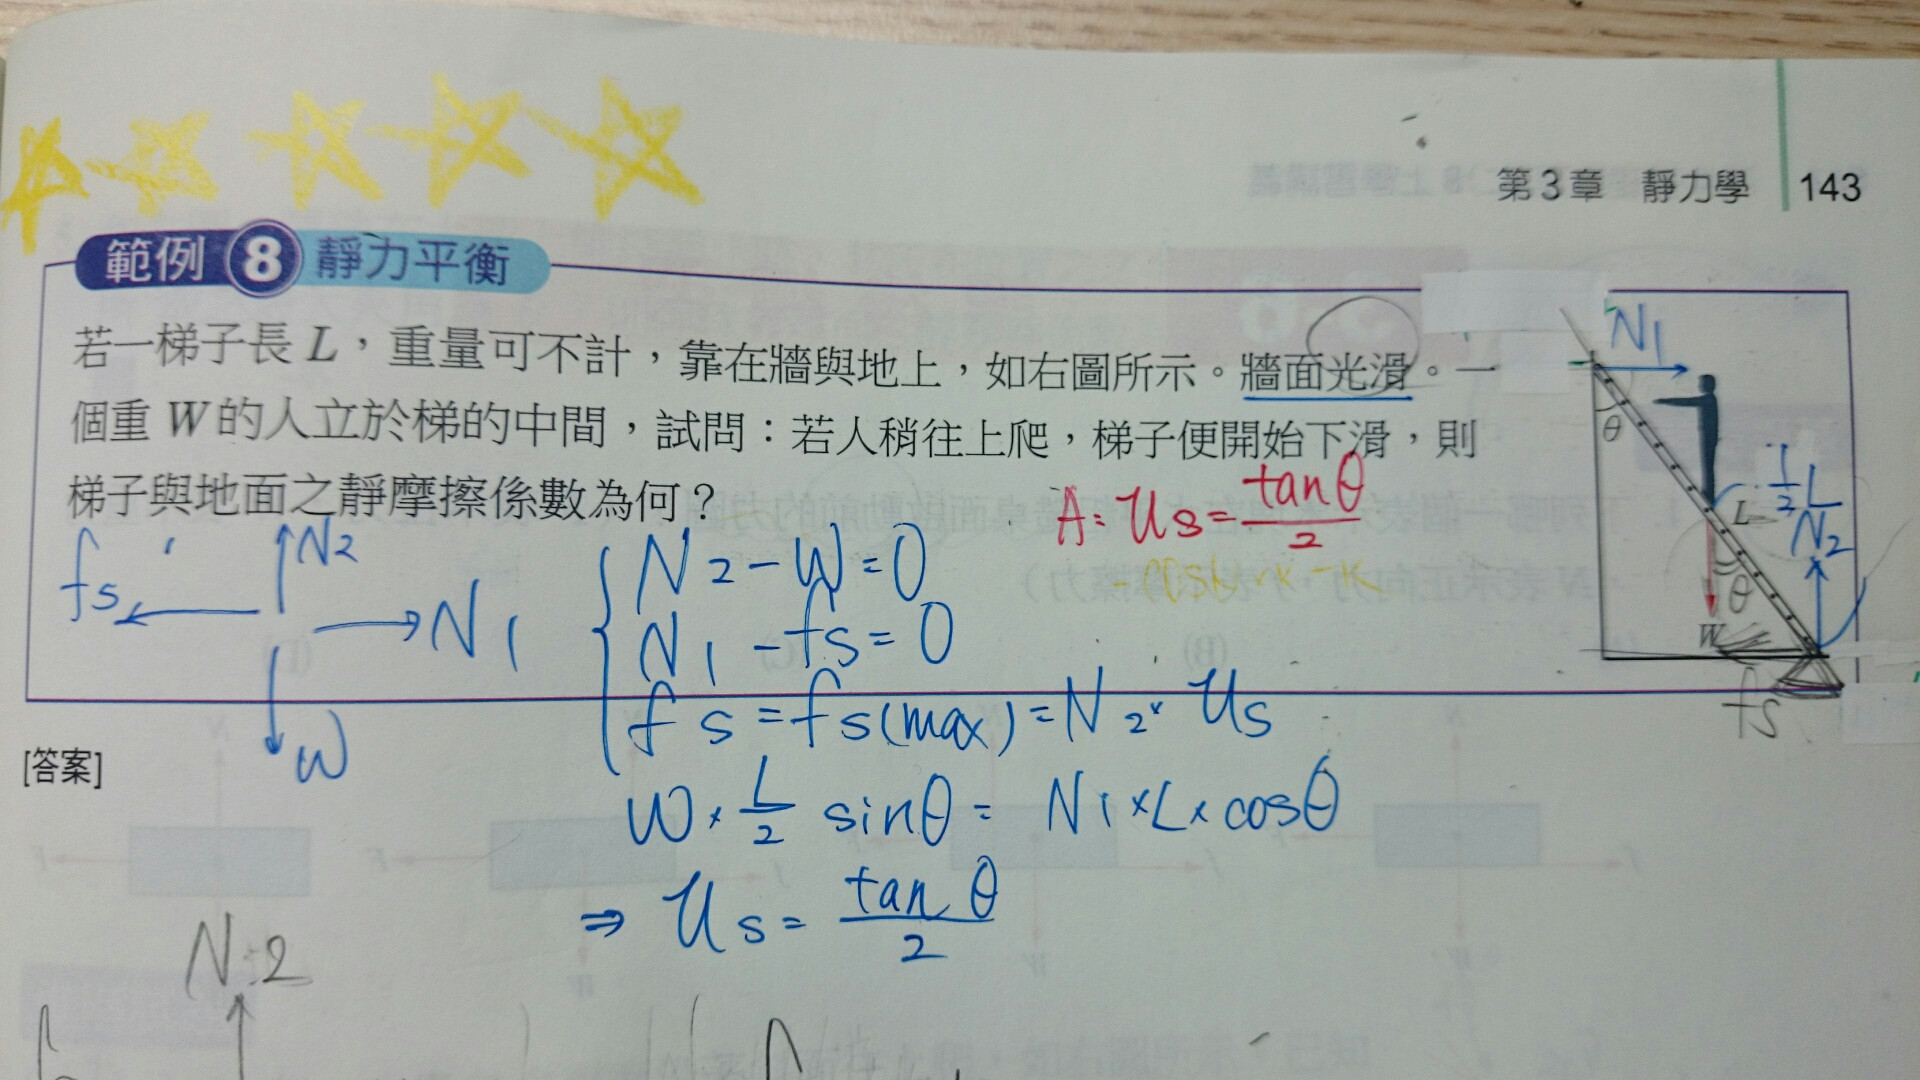 第3章 靜力學 143
範例 8 靜力平衡
若一梯子長 L，重量可不計，靠在牆與地上，如右圖所示。牆面光滑。一
個重 W 的人立於梯的中間，試問：若人稍往上爬，梯子便開始下滑，則
梯子與地面之靜摩擦係數為何？
A: us = tanθ/2
N1
θ
1/2 L
L
N2
θ
W
fs
fs
N2
N1
W
N2 - W = 0
N1 - fs = 0
fs = fs(max) = N2 × us
W × L/2 sinθ = N1 × L × cosθ
⇒ us = tanθ/2
[答案]
N2